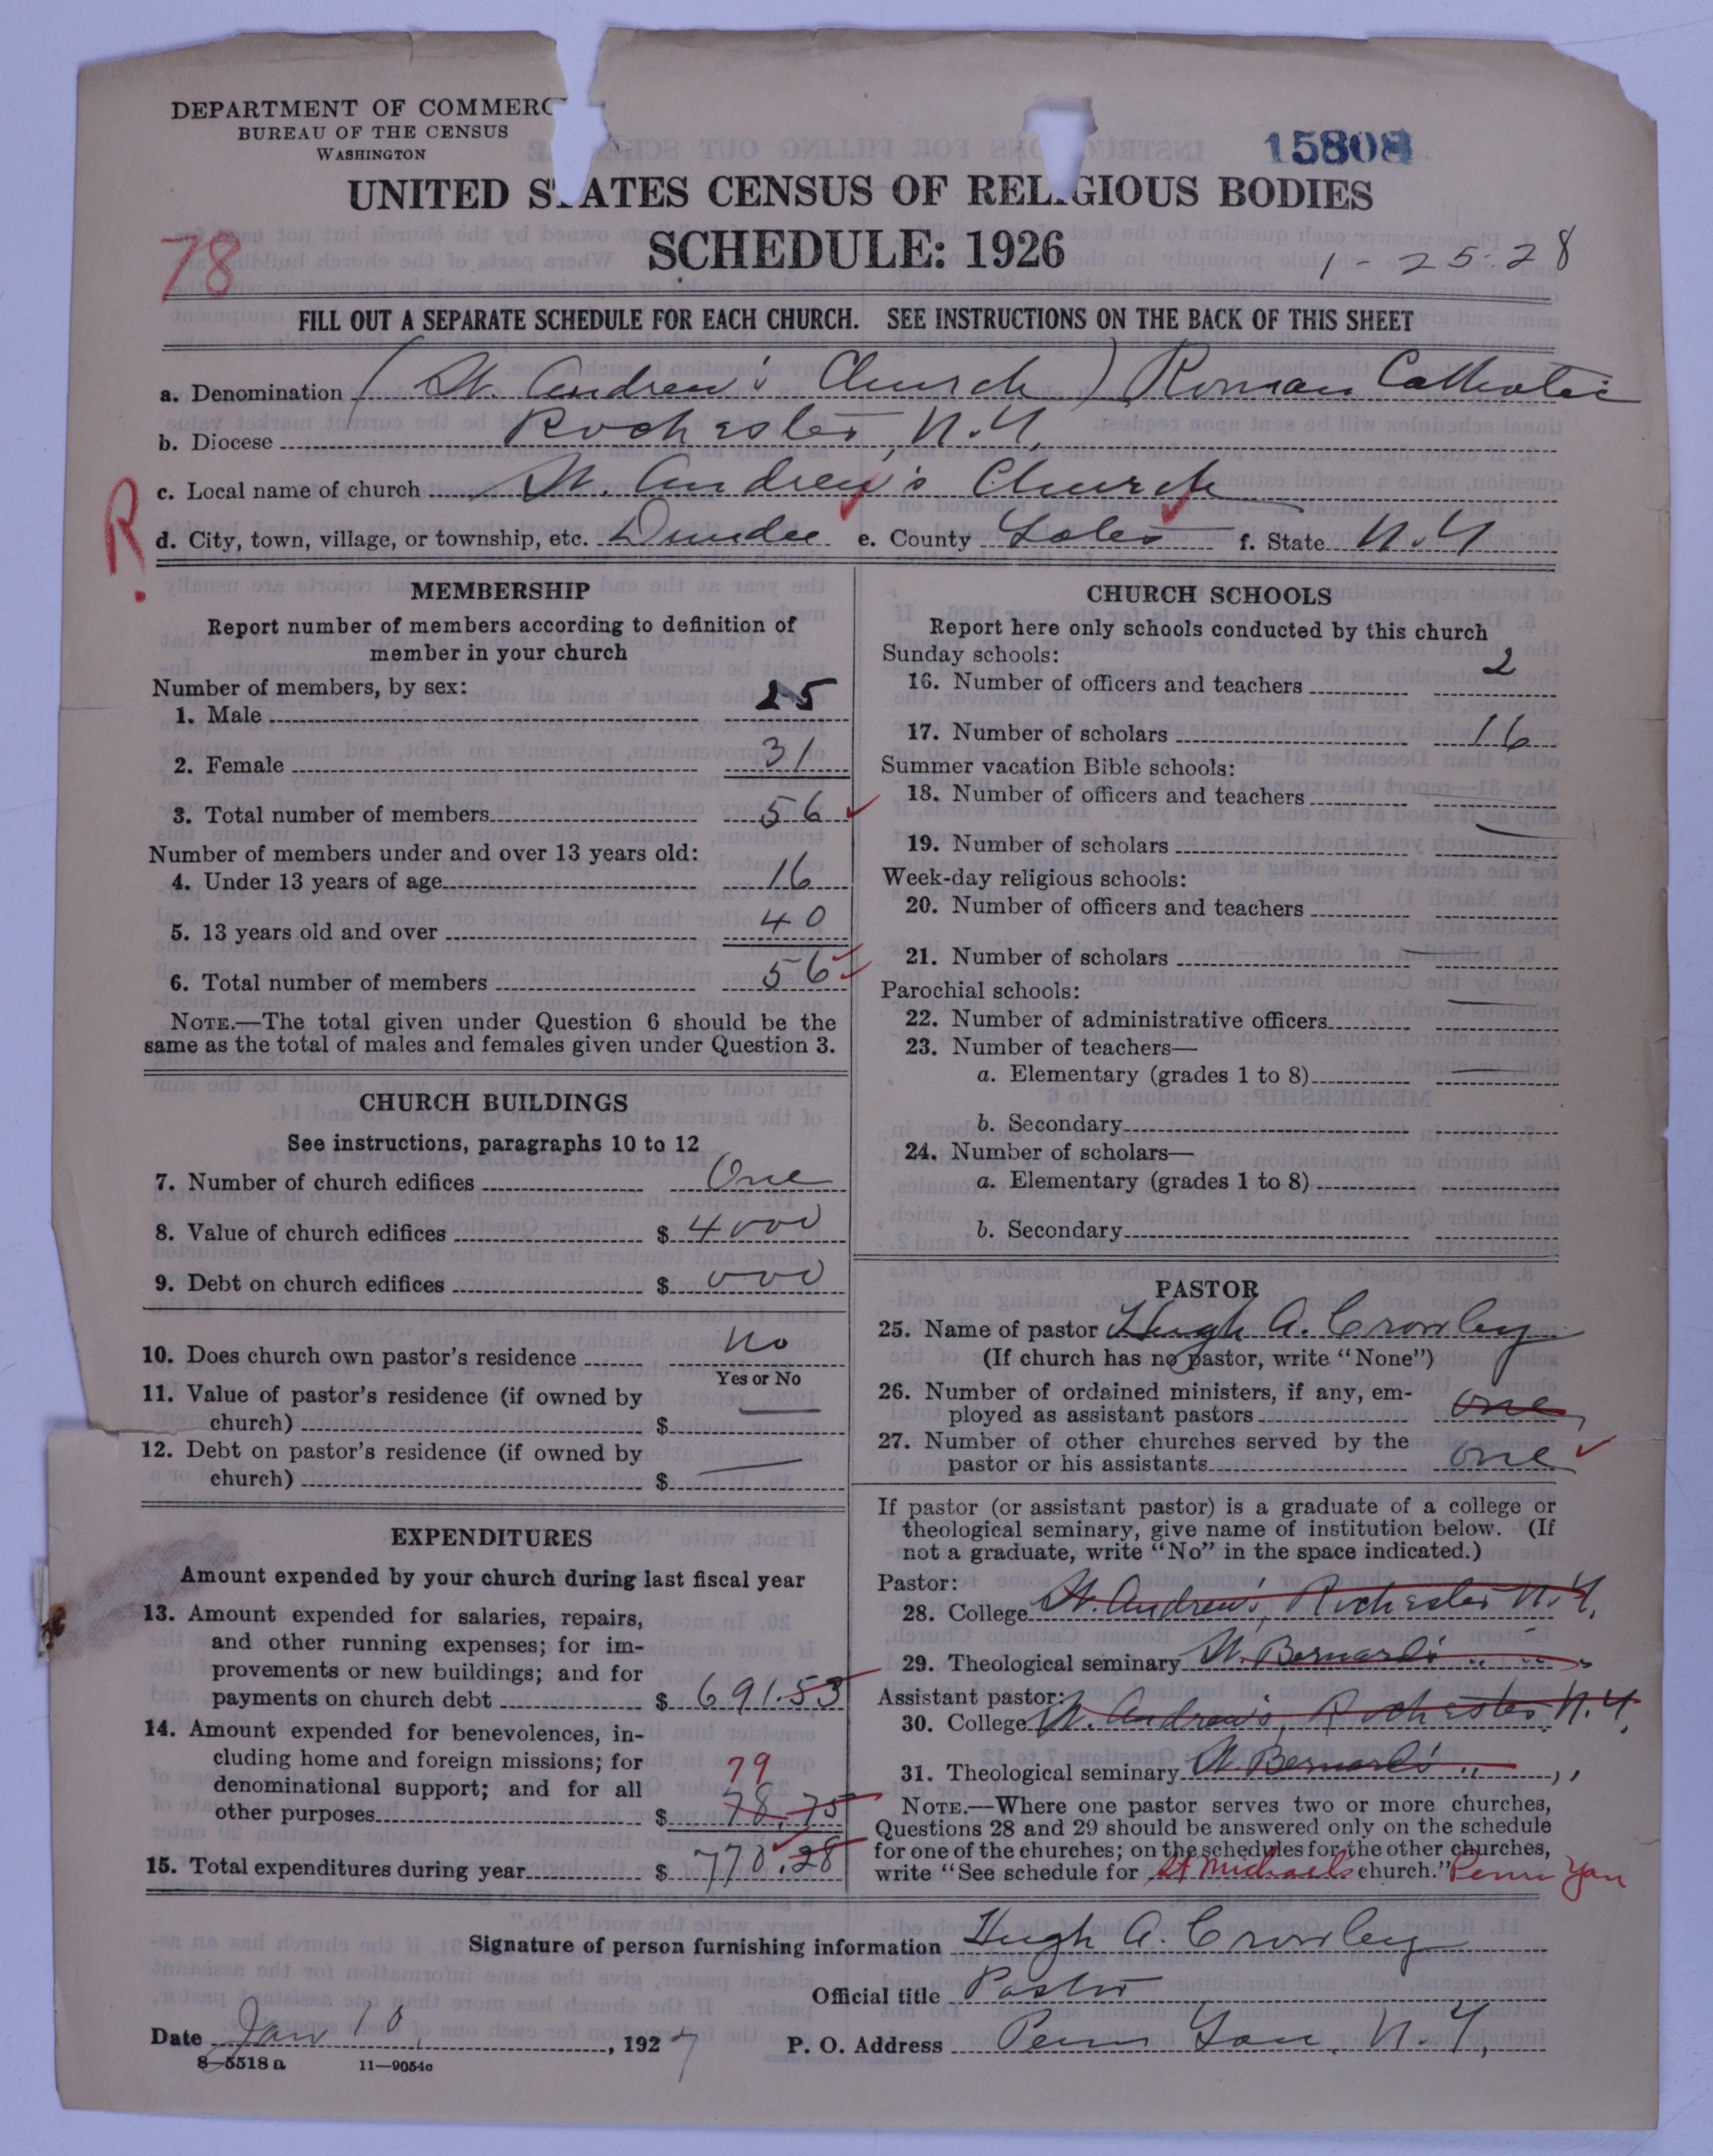 DEPARTMENT OF COMMERC
BUREAU OF THE CENSUS
WASHINGTON
15808
UNITED STATES CENSUS OF RELIGIOUS BODIES
78
SCHEDULE: 1926
1-25-28
FILL OUT A SEPARATE SCHEDULE FOR EACH CHURCH. SEE INSTRUCTIONS ON THE BACK OF THIS SHEET
a. Denomination (St. Andrew's Church) Roman Catholic
b. Diocese Rochester, N.Y.
R.
c. Local name of church St. Andrew's Church
d. City, town, village, or township, etc. Dundee e. County Yates f. State N.Y
MEMBERSHIP
Report number of members according to definition of
member in your church
Number of members, by sex:
1. Male 25
2. Female 31
3. Total number of members 56
Number of members under and over 13 years old:
4. Under 13 years of age 16
5. 13 years old and over 40
6. Total number of members 56
NOTE.—The total given under Question 6 should be the
same as the total of males and females given under Question 3.
CHURCH BUILDINGS
See instructions, paragraphs 10 to 12
7. Number of church edifices One
8. Value of church edifices $ 4000
9. Debt on church edifices $ 000
10. Does church own pastor's residence No
Yes or No
11. Value of pastor's residence (if owned by
church) $ —
12. Debt on pastor's residence (if owned by
church) $ —
EXPENDITURES
Amount expended by your church during last fiscal year
13. Amount expended for salaries, repairs,
and other running expenses; for im-
provements or new buildings; and for
payments on church debt $ 691.53
14. Amount expended for benevolences, in-
cluding home and foreign missions; for
79
denominational support; and for all
other purposes $ 78.75
15. Total expenditures during year $ 770.28
CHURCH SCHOOLS
Report here only schools conducted by this church
Sunday schools:
16. Number of officers and teachers 2
17. Number of scholars 16
Summer vacation Bible schools:
18. Number of officers and teachers
19. Number of scholars
Week-day religious schools:
20. Number of officers and teachers
21. Number of scholars
Parochial schools:
22. Number of administrative officers
23. Number of teachers—
a. Elementary (grades 1 to 8)
b. Secondary
24. Number of scholars—
a. Elementary (grades 1 to 8)
b. Secondary
PASTOR
25. Name of pastor Hugh A. Crowley
(If church has no pastor, write "None")
26. Number of ordained ministers, if any, em-
ployed as assistant pastors one
27. Number of other churches served by the
pastor or his assistants one
If pastor (or assistant pastor) is a graduate of a college or
theological seminary, give name of institution below. (If
not a graduate, write "No" in the space indicated.)
Pastor:
28. College St. Andrew's, Rochester N.Y.
29. Theological seminary St. Bernard's " " "
Assistant pastor:
30. College St. Andrew's, Rochester N.Y.
31. Theological seminary St. Bernard's " "
NOTE.—Where one pastor serves two or more churches,
Questions 28 and 29 should be answered only on the schedule
for one of the churches; on the schedules for the other churches,
write "See schedule for St Michaels church." Penn Yan
Signature of person furnishing information Hugh A. Crowley
Official title Pastor
Date Jan 10, 1927 P. O. Address Penn Yan, N.Y.
8—5518 a 11—9054c